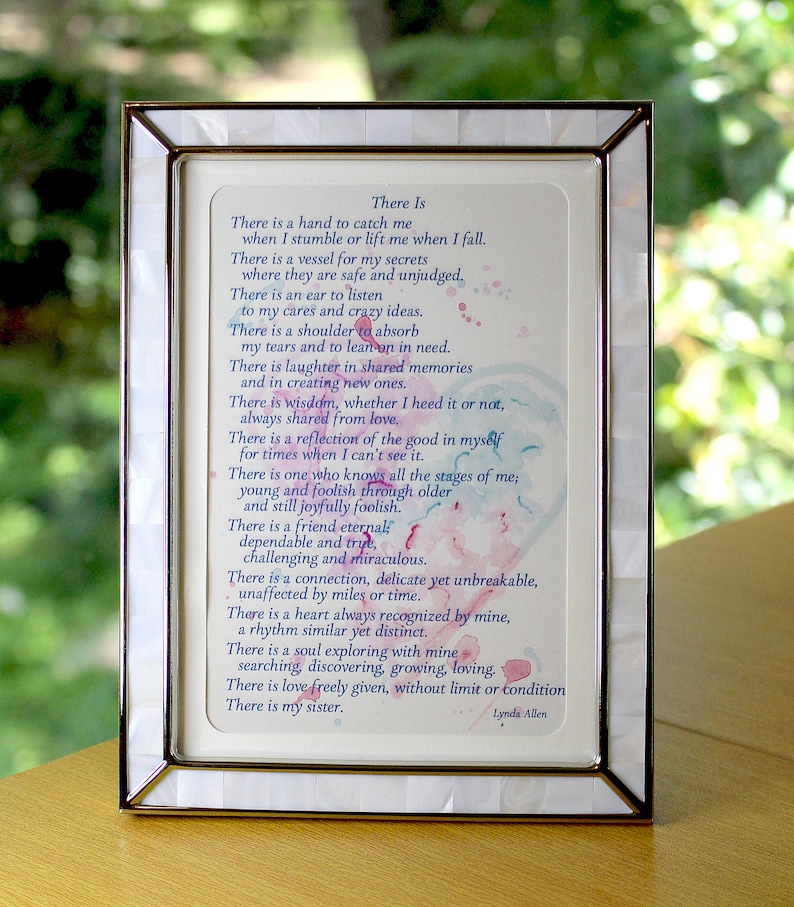 There Is
There is a hand to catch me
when I stumble or lift me when I fall.
There is a vessel for my secrets
where they are safe and unjudged.
There is an ear to listen
to my cares and crazy ideas.
There is a shoulder to absorb
my tears and to lean on in need.
There is laughter in shared memories
and in creating new ones.
There is wisdom, whether I heed it or not,
always shared from love.
There is a reflection of the good in myself
for times when I can't see it.
There is one who knows all the stages of me;
young and foolish through older
and still joyfully foolish.
There is a friend eternal;
dependable and true,
challenging and miraculous.
There is a connection, delicate yet unbreakable,
unaffected by miles or time.
There is a heart always recognized by mine,
a rhythm similar yet distinct.
There is a soul exploring with mine
searching, discovering, growing, loving.
There is love freely given, without limit or condition
There is my sister.
Lynda Allen